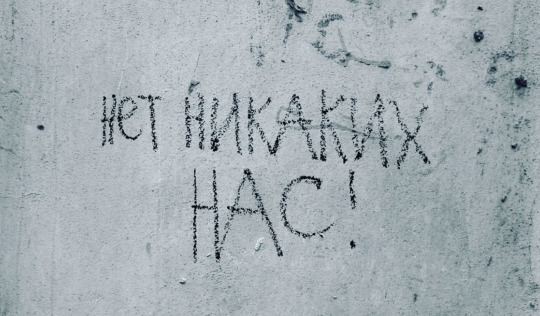 нет никаких
НАС!